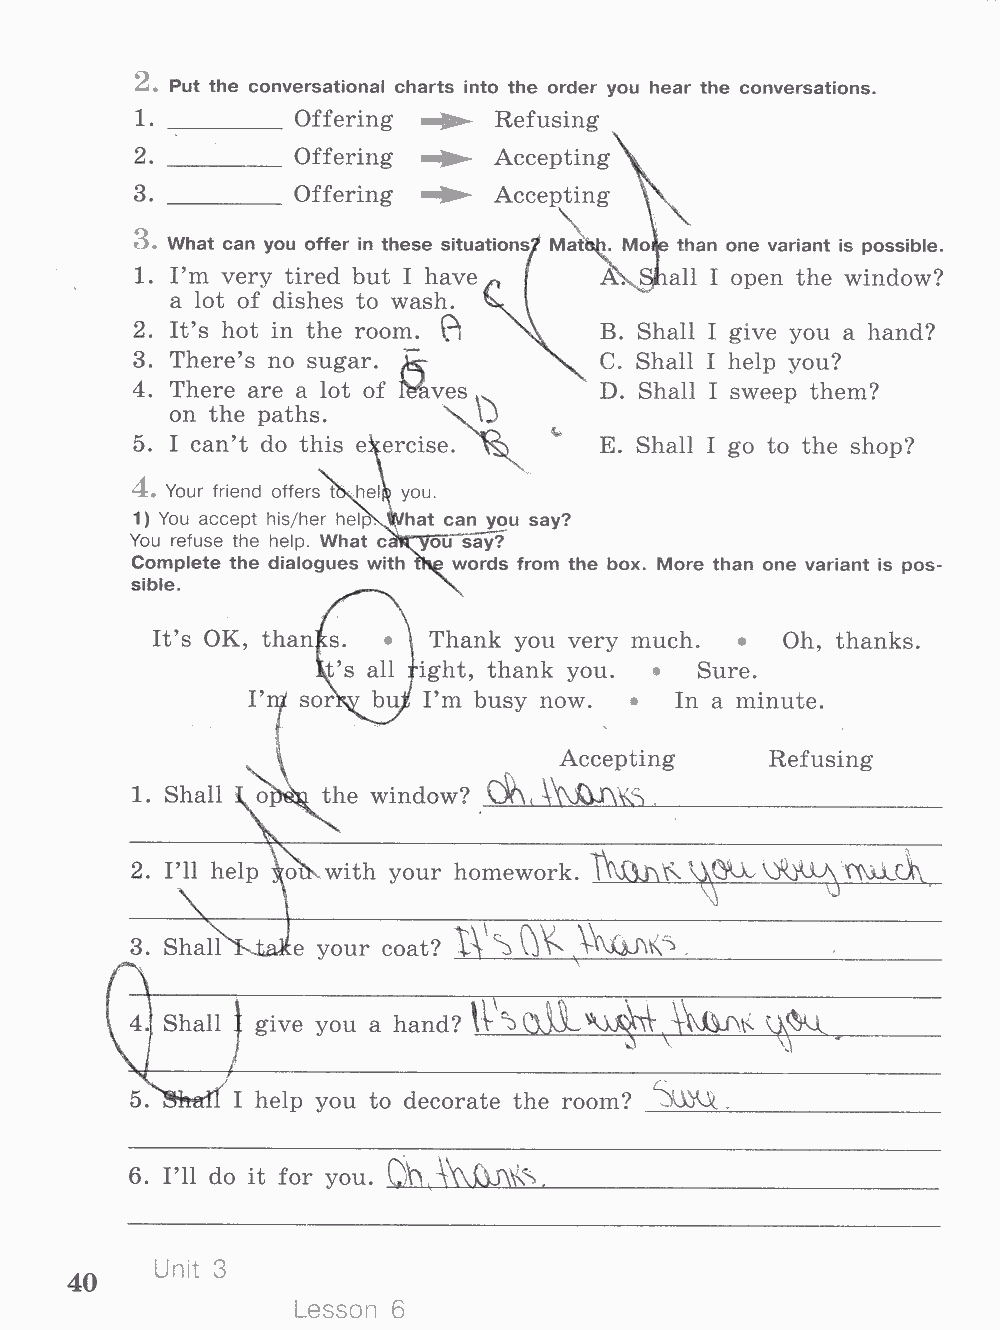 2. Put the conversational charts into the order you hear the conversations.
1. Offering Refusing
2. Offering Accepting
3. Offering Accepting
3. What can you offer in these situations? Match. More than one variant is possible.
1. I'm very tired but I have
a lot of dishes to wash. C
A. Shall I open the window?
2. It's hot in the room. A
B. Shall I give you a hand?
3. There's no sugar. E
C. Shall I help you?
4. There are a lot of leaves
on the paths. D
D. Shall I sweep them?
5. I can't do this exercise. B
E. Shall I go to the shop?
4. Your friend offers to help you.
1) You accept his/her help. What can you say?
You refuse the help. What can you say?
Complete the dialogues with the words from the box. More than one variant is pos-
sible.
It's OK, thanks. • Thank you very much. • Oh, thanks.
It's all right, thank you. • Sure.
I'm sorry but I'm busy now. • In a minute.
Accepting Refusing
1. Shall I open the window? Oh, thanks.
2. I'll help you with your homework. Thank you very much
3. Shall I take your coat? It's OK, thanks.
4. Shall I give you a hand? It's all right, thank you.
5. Shall I help you to decorate the room? Sure.
6. I'll do it for you. Oh, thanks.
40
Unit 3
Lesson 6